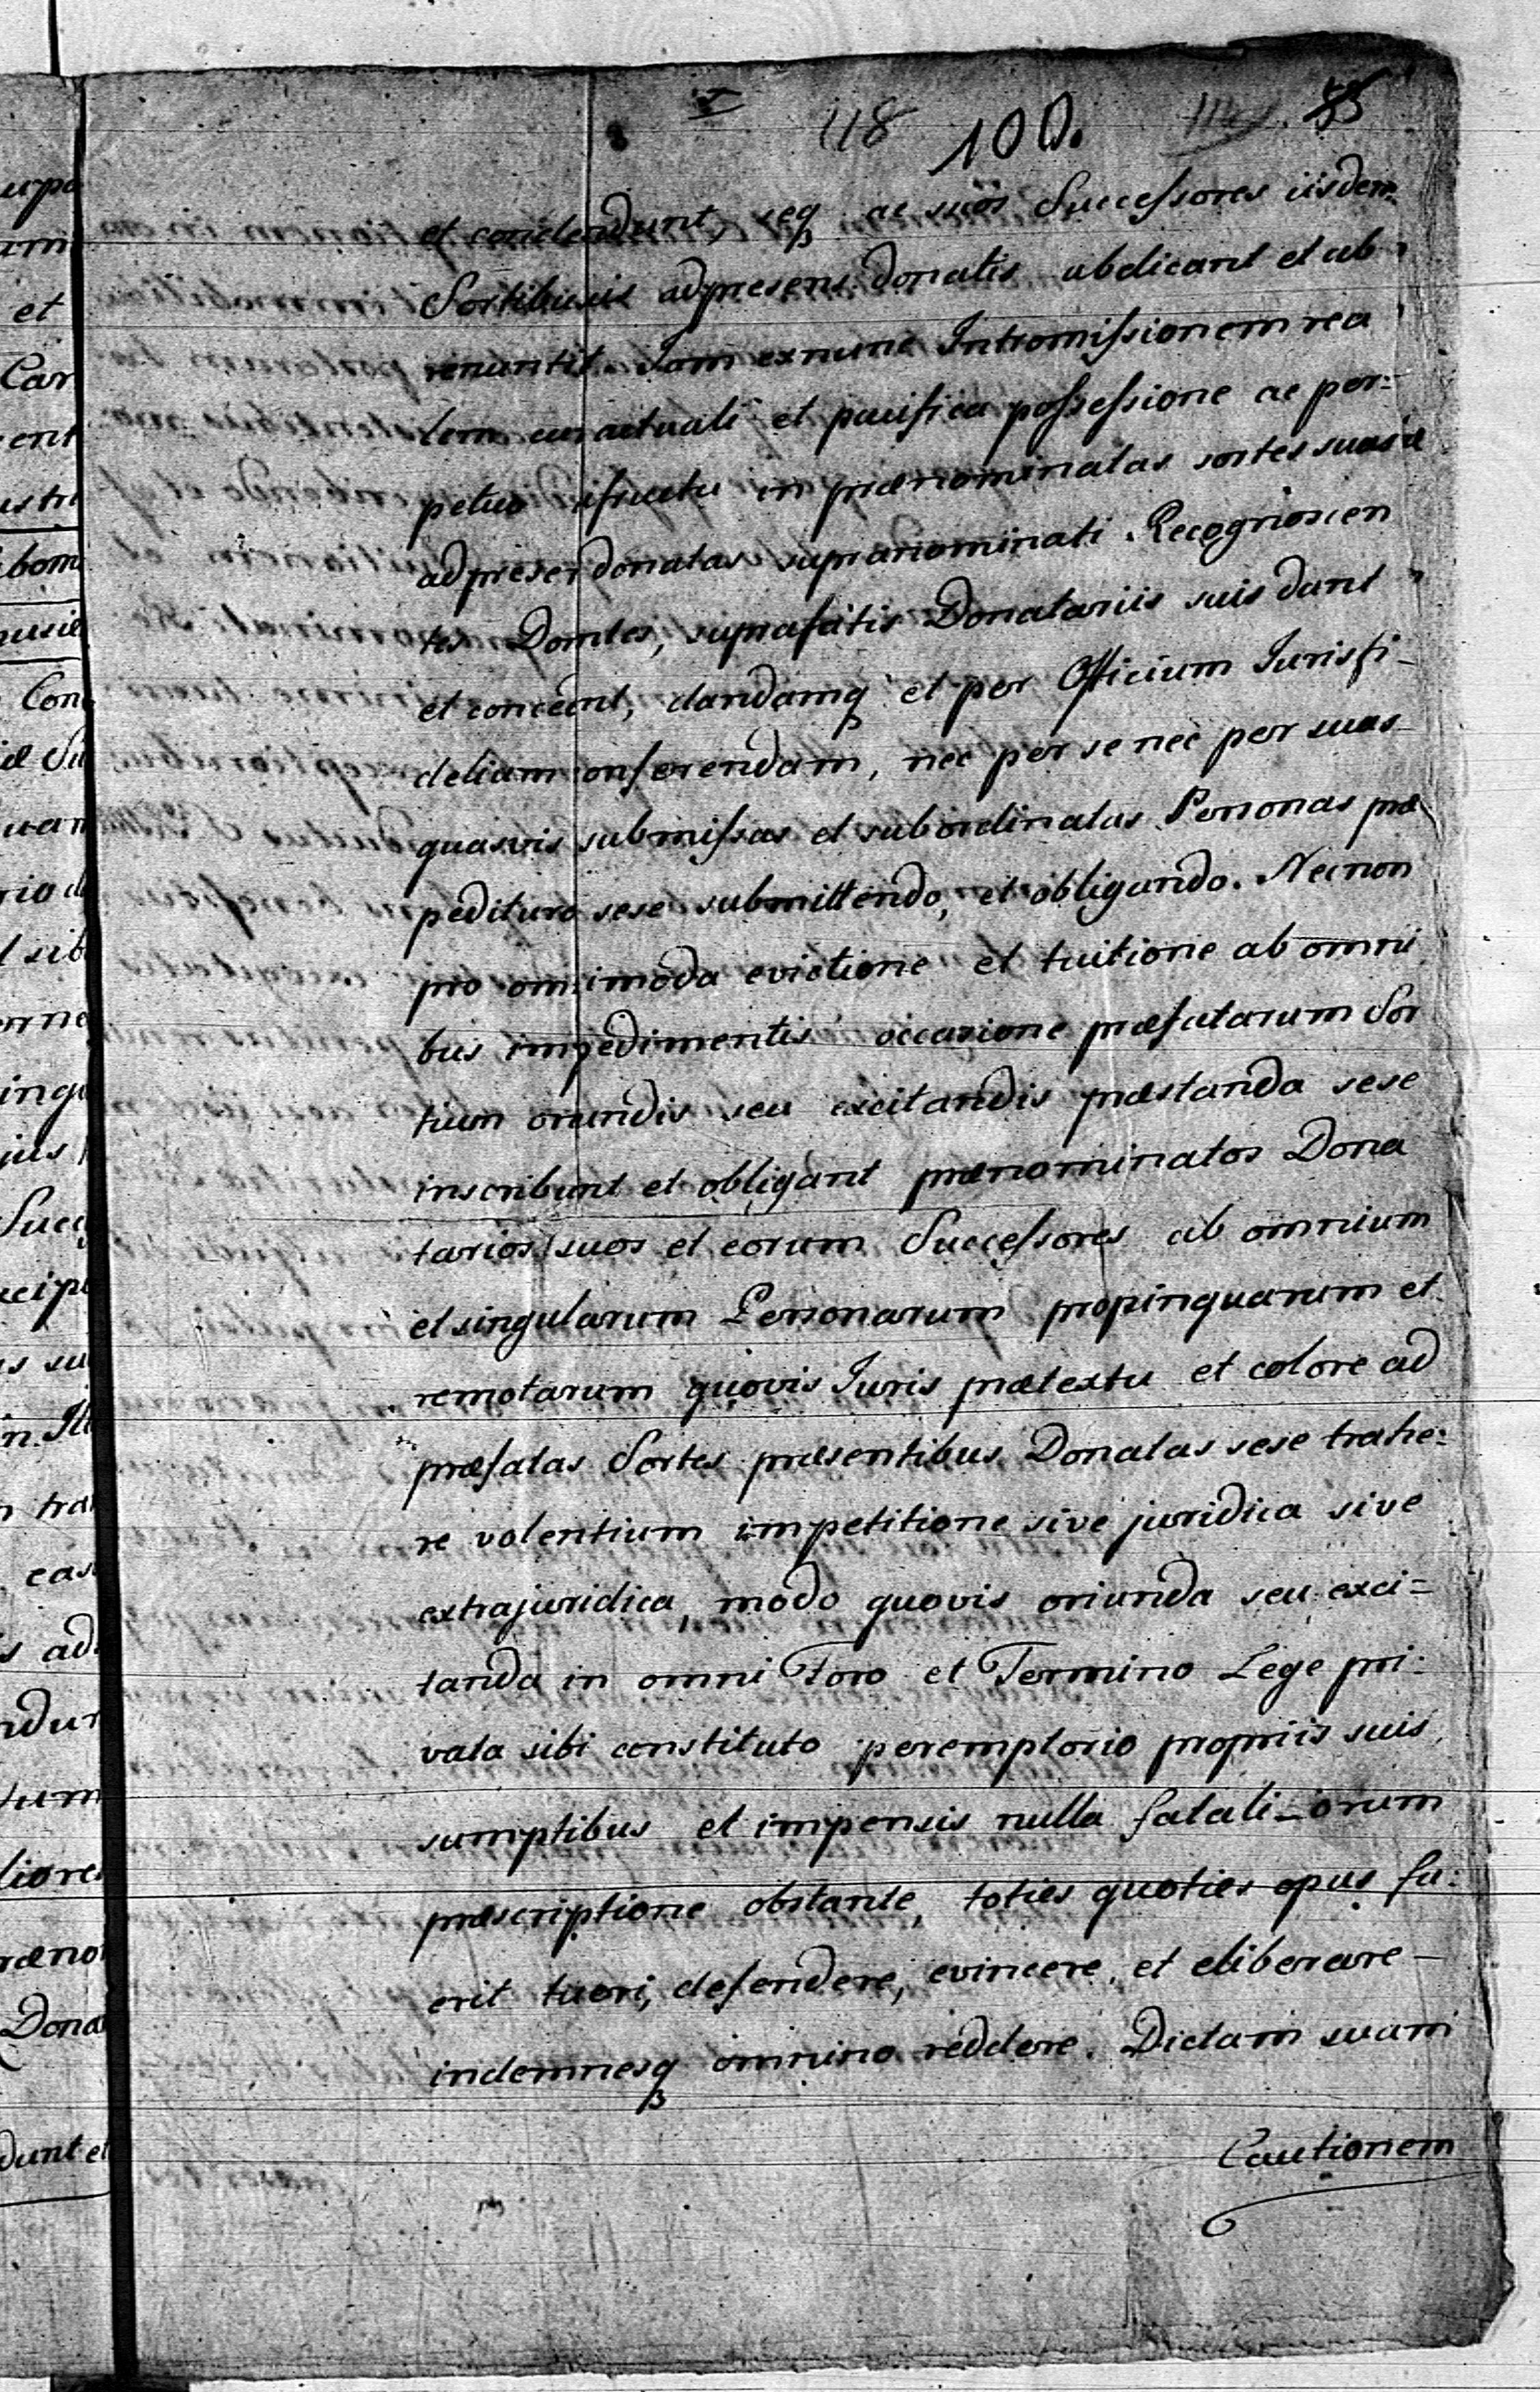 118 100.
et condescendunt, seq ac suos Successores iisdem
Sortibus suis ad presens donatis abdicant et ab
renuntit. Jam ex nunc Intromissionem rea
lem cum actuali et pacifica possessione ac per:
petuo usufructu in prænominatas sortes suas
ad presens donatas supranominati Recognoscen
tes Domtes, suprafatis Donatariis suis dant
et concednt, dandamq et per Officium Jurisfi-
delium conferendam, nec per se nec per suas
quasvis submissas et subordinatas Personas præ
pedituro sese submittendo, et obligando. Necnon
pro omnimoda evictione et tuitione ab omni
bus impedimentis occasione præfatarum Sor
tium orundis seu excitandis præstanda sese
inscribunt et obligant prænominatos Dona
tarios suos et eorum Successores ab omnium
et singularum Personarum propinquarum et
remotarum quovis Juris prætextu et colore ad
præfatas Sortes præsentibus Donatas sese trahe:
re volentium impetitione sive juridica sive
extrajuridica, modo quovis oriunda seu exci=
tanda in omni Foro et Termino Lege pri:
vata sibi constituto peremptorio propriis suis
sumptibus et impensis nulla fatali-orum
præscriptione obstante, toties quoties opus fu:
erit tueri, defendere, evincere, et eliberare-
indemnesq omnino reddere. Dictam suam
Cautionem